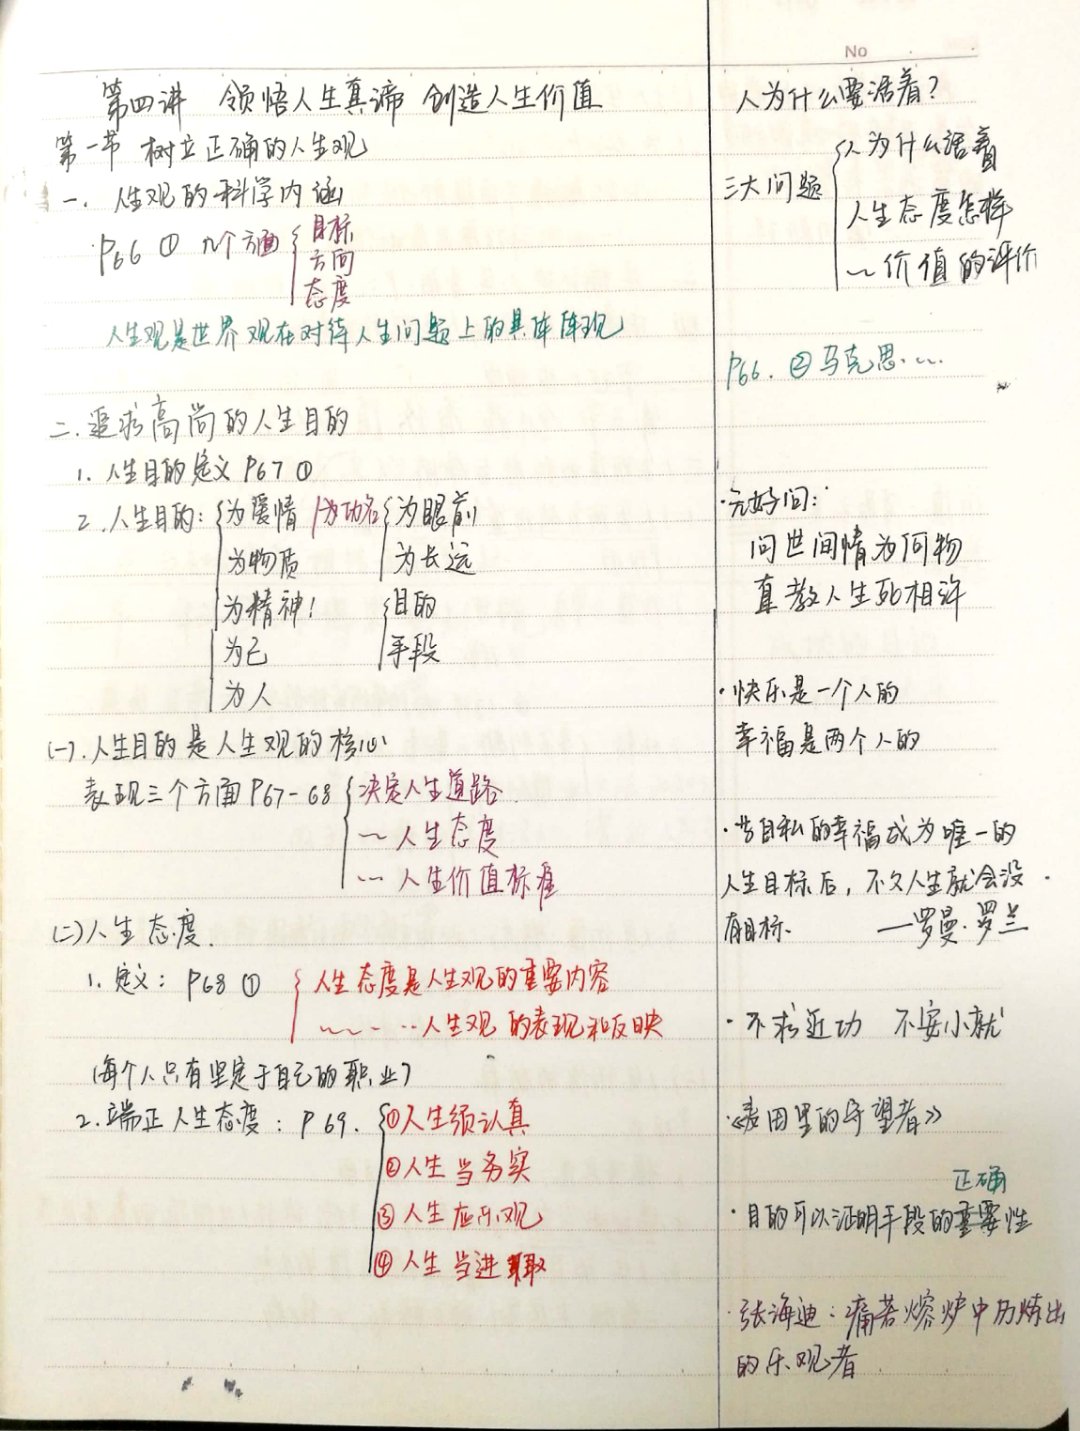 No
第四讲 领悟人生真谛 创造人生价值
第一节 树立正确的人生观
一. 人生观的科学内涵
P66 ① 几个方面 目标
方向
态度
人生观是世界观在对待人生问题上的具体体现
二.追求高尚的人生目的
1. 人生目的定义 P67 ①
2.人生目的: 为爱情 为功名 为眼前
为物质 为长远
为精神! 目的
为己 手段
为人
(一).人生目的是人生观的核心
表现三个方面P67-68 决定人生道路
~ 人生态度
~ 人生价值标准
(二)人生态度.
1. 定义: P68 ① 人生态度是人生观的重要内容
~~··人生观的表现和反映
(每个人只有坚定于自己的职业)
2.端正人生态度: P69. ①人生须认真
②人生当务实
③人生应乐观
④人生当进取
人为什么要活着?
三大问题 人为什么活着
人生态度怎样
~价值的评价
P66. ②马克思....
·元好问:
问世间情为何物
直教人生死相许
·快乐是一个人的
幸福是两个人的
·当自私的幸福成为唯一的
人生目标后, 不久人生就会没
有目标. —罗曼·罗兰
·不求近功 不安小就
·《麦田里的守望者》
正确
·目的可以证明手段的重要性
·张海迪:痛苦熔炉中历炼出
的乐观者